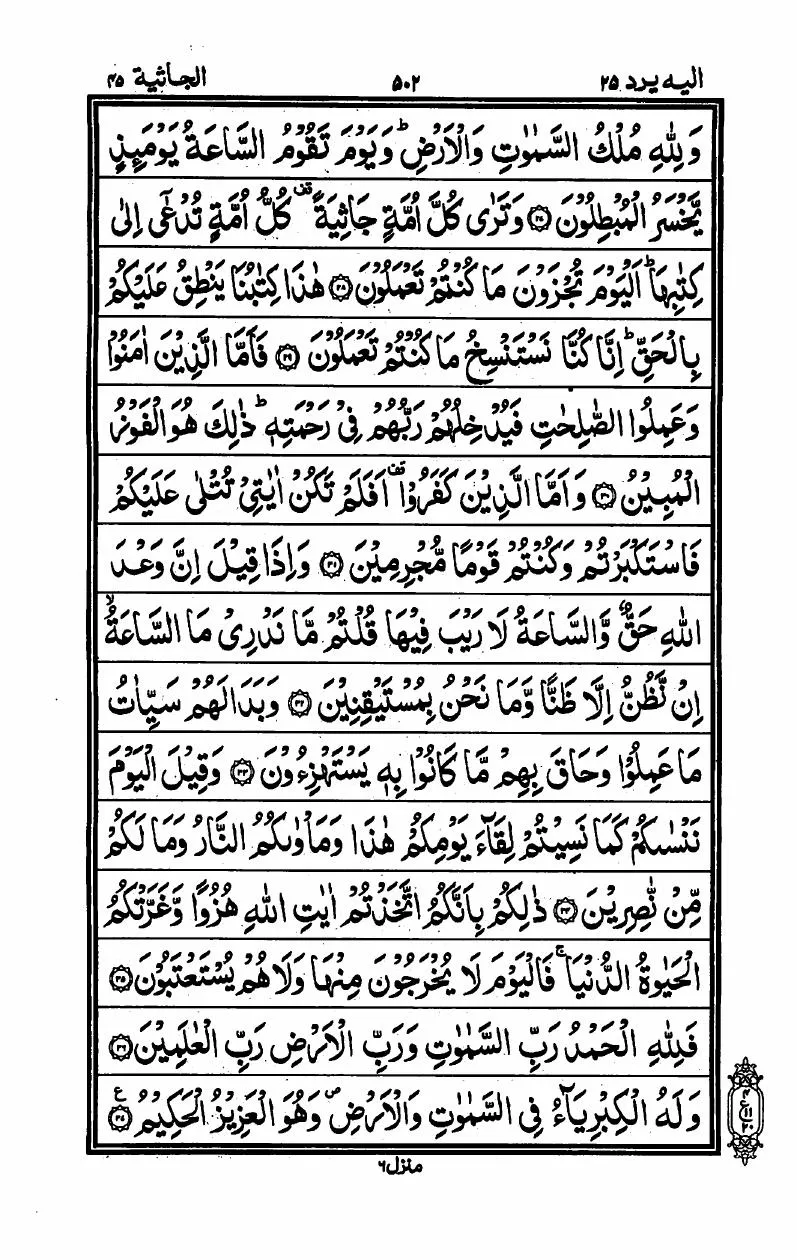 اليه يرد ٢٥ ٥٠٢ الجاثية ٤٥
وَلِلّٰهِ مُلْكُ السَّمٰوٰتِ وَالْاَرْضِ ؕ وَيَوْمَ تَقُوْمُ السَّاعَةُ يَوْمَىِٕذٍ
يَّخْسَرُ الْمُبْطِلُوْنَ ۝٢٧ وَتَرٰى كُلَّ اُمَّةٍ جَاثِيَةً ۫ كُلُّ اُمَّةٍ تُدْعٰۤى اِلٰى
كِتٰبِهَا ؕ اَلْيَوْمَ تُجْزَوْنَ مَا كُنْتُمْ تَعْمَلُوْنَ ۝٢٨ هٰذَا كِتٰبُنَا يَنْطِقُ عَلَيْكُمْ
بِالْحَقِّ ؕ اِنَّا كُنَّا نَسْتَنْسِخُ مَا كُنْتُمْ تَعْمَلُوْنَ ۝٢٩ فَاَمَّا الَّذِيْنَ اٰمَنُوْا
وَعَمِلُوا الصّٰلِحٰتِ فَيُدْخِلُهُمْ رَبُّهُمْ فِىْ رَحْمَتِهٖ ؕ ذٰلِكَ هُوَ الْفَوْزُ
الْمُبِيْنُ ۝٣٠ وَاَمَّا الَّذِيْنَ كَفَرُوْا ۫ اَفَلَمْ تَكُنْ اٰيٰتِىْ تُتْلٰى عَلَيْكُمْ
فَاسْتَكْبَرْتُمْ وَكُنْتُمْ قَوْمًا مُّجْرِمِيْنَ ۝٣١ وَاِذَا قِيْلَ اِنَّ وَعْدَ
اللّٰهِ حَقٌّ وَّالسَّاعَةُ لَا رَيْبَ فِيْهَا قُلْتُمْ مَّا نَدْرِىْ مَا السَّاعَةُ ۙ
اِنْ نَّظُنُّ اِلَّا ظَنًّا وَّمَا نَحْنُ بِمُسْتَيْقِنِيْنَ ۝٣٢ وَبَدَا لَهُمْ سَيِّاٰتُ
مَا عَمِلُوْا وَحَاقَ بِهِمْ مَّا كَانُوْا بِهٖ يَسْتَهْزِءُوْنَ ۝٣٣ وَقِيْلَ الْيَوْمَ
نَنْسٰىكُمْ كَمَا نَسِيْتُمْ لِقَآءَ يَوْمِكُمْ هٰذَا وَمَاْوٰىكُمُ النَّارُ وَمَا لَكُمْ
مِّنْ نّٰصِرِيْنَ ۝٣٤ ذٰلِكُمْ بِاَنَّكُمُ اتَّخَذْتُمْ اٰيٰتِ اللّٰهِ هُزُوًا وَّغَرَّتْكُمُ
الْحَيٰوةُ الدُّنْيَا ۚ فَالْيَوْمَ لَا يُخْرَجُوْنَ مِنْهَا وَلَا هُمْ يُسْتَعْتَبُوْنَ ۝٣٥
فَلِلّٰهِ الْحَمْدُ رَبِّ السَّمٰوٰتِ وَرَبِّ الْاَرْضِ رَبِّ الْعٰلَمِيْنَ ۝٣٦
وَلَهُ الْكِبْرِيَآءُ فِى السَّمٰوٰتِ وَالْاَرْضِ ۪ وَهُوَ الْعَزِيْزُ الْحَكِيْمُ ۝٣٧ ع
٤
١١
ع
٢٠
منزل ٦